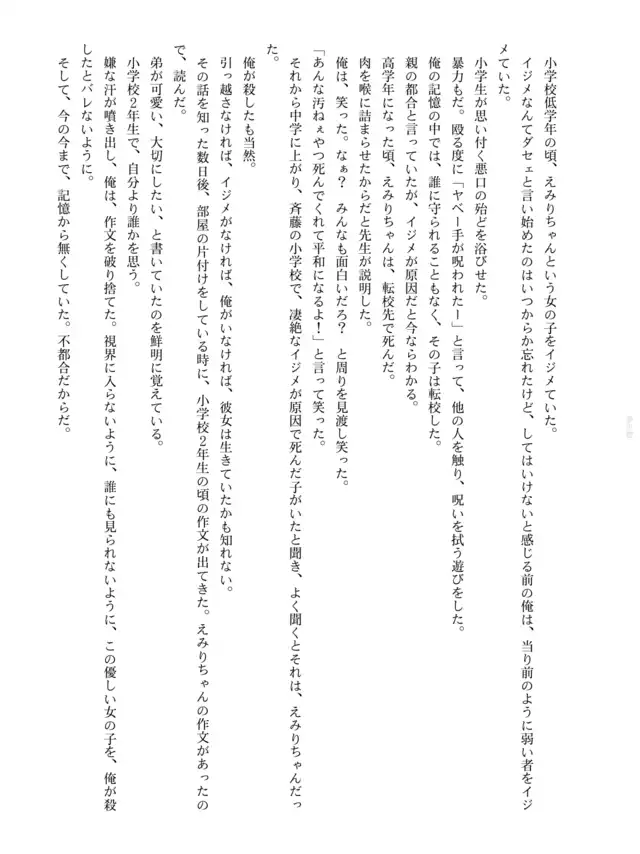 小学校低学年の頃、えみりちゃんという女の子をイジメていた。
イジメなんてダセェと言い始めたのはいつからか忘れたけど、してはいけないと感じる前の俺は、当り前のように弱い者をイジ
メていた。
小学生が思い付く悪口の殆どを浴びせた。
暴力もだ。殴る度に「ヤベー手が呪われたー」と言って、他の人を触り、呪いを拭う遊びをした。
俺の記憶の中では、誰に守られることもなく、その子は転校した。
親の都合と言っていたが、イジメが原因だと今ならわかる。
高学年になった頃、えみりちゃんは、転校先で死んだ。
肉を喉に詰まらせたからだと先生が説明した。
俺は、笑った。なぁ？　みんなも面白いだろ？　と周りを見渡し笑った。
「あんな汚ねぇやつ死んでくれて平和になるよ！」と言って笑った。
それから中学に上がり、斉藤の小学校で、凄絶なイジメが原因で死んだ子がいたと聞き、よく聞くとそれは、えみりちゃんだっ
た。
俺が殺したも当然。
引っ越さなければ、イジメがなければ、俺がいなければ、彼女は生きていたかも知れない。
その話を知った数日後、部屋の片付けをしている時に、小学校２年生の頃の作文が出てきた。えみりちゃんの作文があったの
で、読んだ。
弟が可愛い、大切にしたい、と書いていたのを鮮明に覚えている。
小学校２年生で、自分より誰かを思う。
嫌な汗が噴き出し、俺は、作文を破り捨てた。視界に入らないように、誰にも見られないように、この優しい女の子を、俺が殺
したとバレないように。
そして、今の今まで、記憶から無くしていた。不都合だからだ。